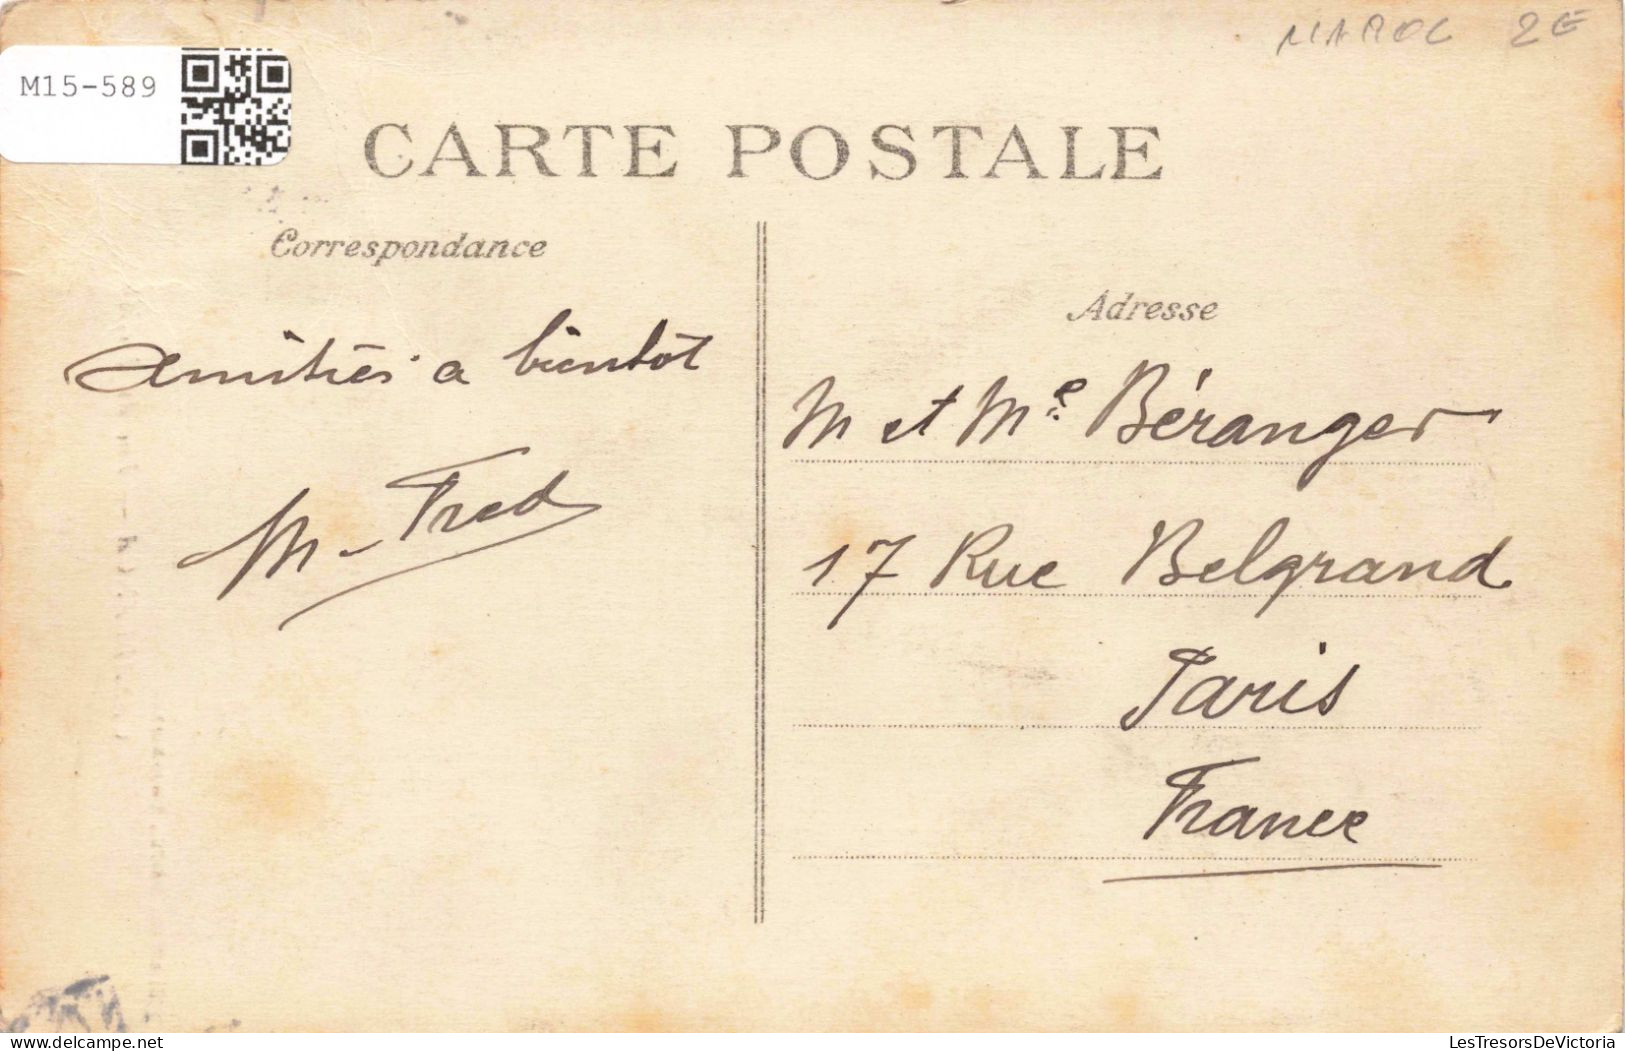 MAROC 2€
M15-589
CARTE POSTALE
Correspondance
Amitiés a bientôt
M-Fred
Adresse
M et Me Béranger
17 Rue Belgrand
Paris
France
LesTresorsDeVictoria
delcampe.net